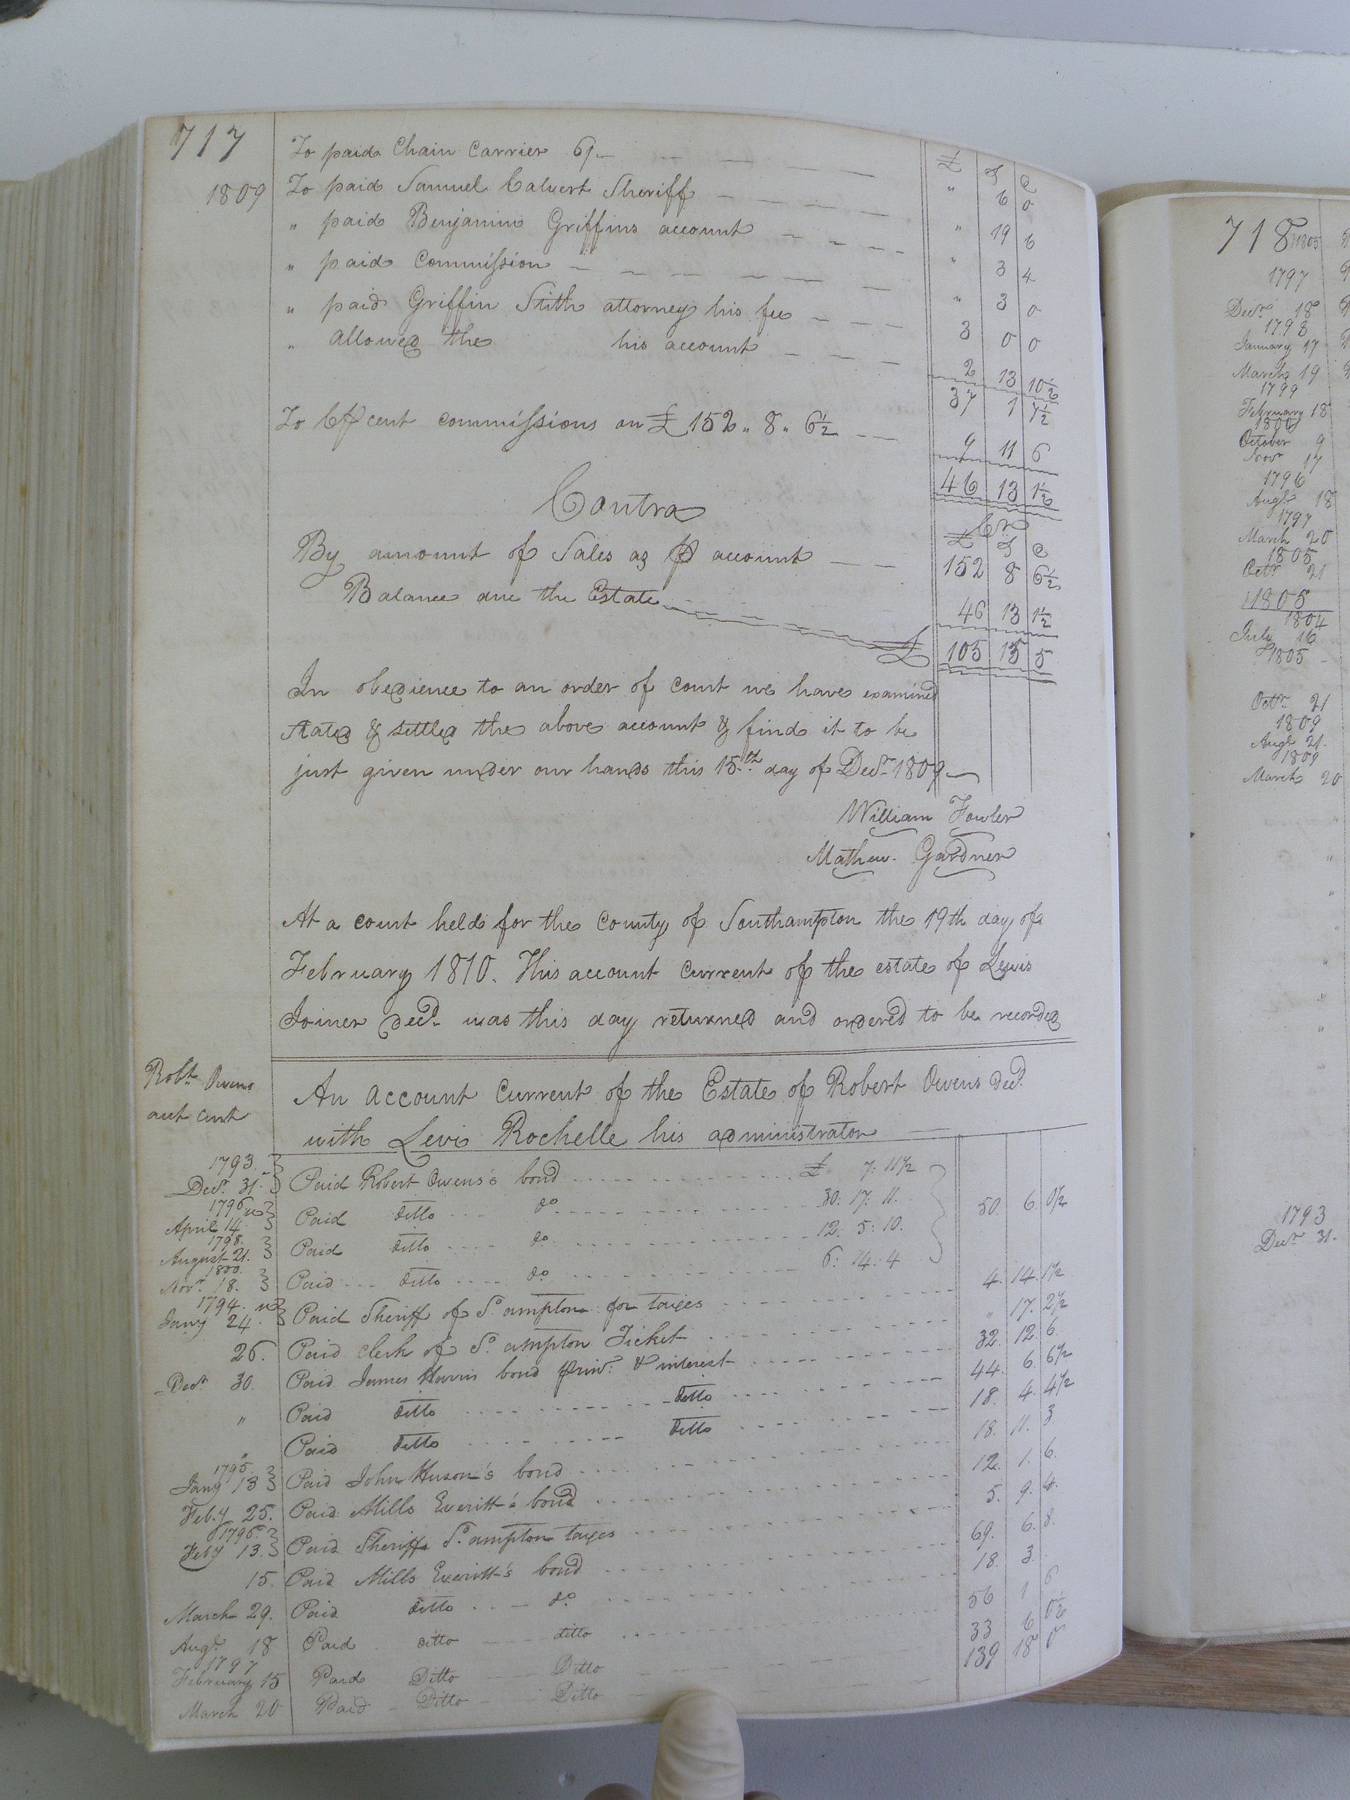 717
£ S D
To paid Chain Carrier 6/- " 6 0
1809 To paid Samuel Calvert Sheriff " 19 6
" paid Benjamin Griffins account " 3 4
" paid Commission " 3 0
" paid Griffin Stith attorney his fee 3 0 0
" allowed the his account 2 13 10½
37 1 7½
To 6 ⅌ cent commissions on £152 " 8 " 6½ 9 11 6
46 13 1½
Contra Cr
£ S D
By amount of Sales as ⅌ account 152 8 6½
Balance due the Estate 46 13 1½
£ 105 15 5
In obedience to an order of court we have examined
stated & settled the above account & find it to be
just given under our hands this 15th day of Decr 1809
William Fowler
Mathew Gardner
At a court held for the county of Southampton the 19th day of
February 1810. This account current of the estate of Lewis
Joiner decd was this day returned and ordered to be recorded
Robt Owens
acct curt
An account current of the Estate of Robert Owens decd
with Levi Rochelle his administrator
1793
Decr 31. Paid Robert Owens's bond £ 7: 11½
1796
April 14. Paid ditto do 30: 17: 11.
1798.
August 21. Paid ditto do 12: 5: 10. 50. 6. 0½
1800.
Novr 18. Paid ditto do 6: 14: 4
1794.
Jany 24. Paid Sheriff of So ampton for taxes 4. 14. 1½
26. Paid clerk of So ampton Ticket " 17. 2½
Decr 30. Paid James Harris bond prinl & interest 32. 12. 6
" Paid ditto ditto 44. 6. 6½
" Paid ditto ditto 18. 4. 4½
1795.
Jany 13 Paid John Huson's bond 18. 11. 3
Feby 25. Paid Mills Everitt's bond 12. 1. 6.
1796.
Feby 13. Paid Sheriff So ampton taxes 5. 9. 4.
15. Paid Mills Everitt's bond 69. 6. 8.
March 29. Paid ditto do 18. 3.
Augt 18 Paid ditto ditto 56 1 6
1797
February 15 Paid Ditto Ditto 33 6 0½
March 20 Paid Ditto Ditto 139 18 0
718
1797
Decr 18
1798
January 17
March 19
1799
February 18
1800
October 9
Novr 17
1796
Augt 18
1797
March 20
1805
Octr 21
1805
1804
July 16
1805
Octr 21
1809
Augt 21.
1809
March 20
1793
Decr 31.